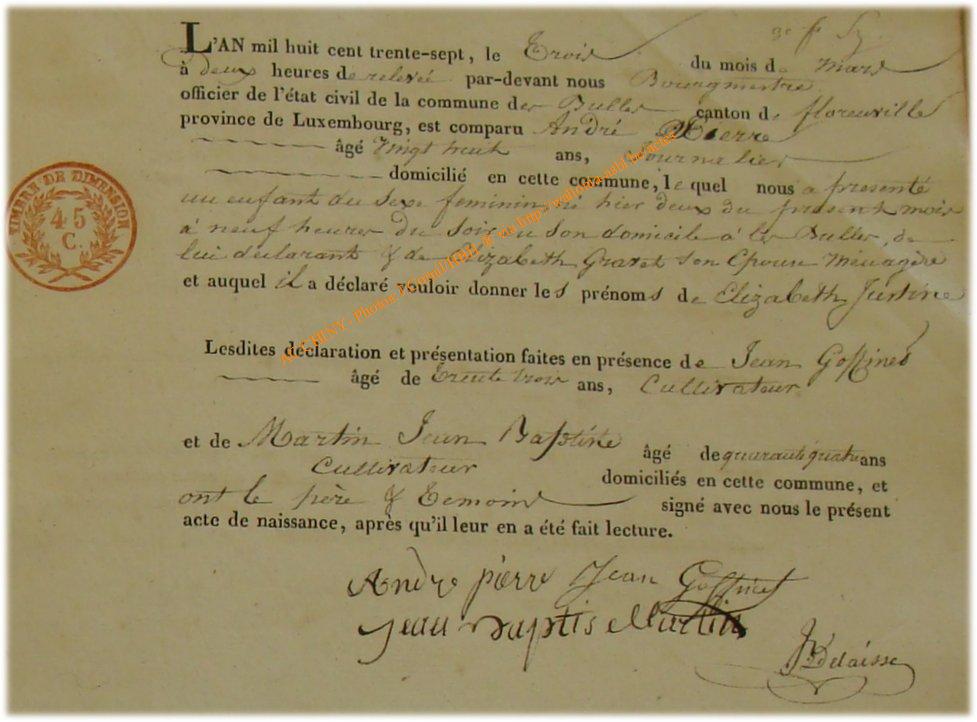 L'AN mil huit cent trente-sept, le Trois du mois de mars
à deux heures de relevée par-devant nous Bourgmestre
officier de l'état civil de la commune des Bulles canton de florenville
province de Luxembourg, est comparu André Pierre
âgé Vingt huit ans, Journalier
domicilié en cette commune, lequel nous a presenté
un enfant du sexe feminin né hier deux du present mois
à neuf heures du soir en son domicile à les Bulles, de
lui déclarant & de Elizabeth Gravet son Epouse Ménagère
et auquel il a déclaré vouloir donner les prénoms de Elizabeth Justine
Lesdites déclaration et présentation faites en présence de Jean Goffinet
âgé de trente trois ans, Cultivateur
et de Martin Jean Baptiste âgé de quarante quatre ans
Cultivateur domiciliés en cette commune, et
ont le père & temoins signé avec nous le présent
acte de naissance, après qu'il leur en a été fait lecture.
Andre pierre Jean Goffinet
jean Baptis Martin
Delaisse
TIMBRE DE DIMENSION
45
C.